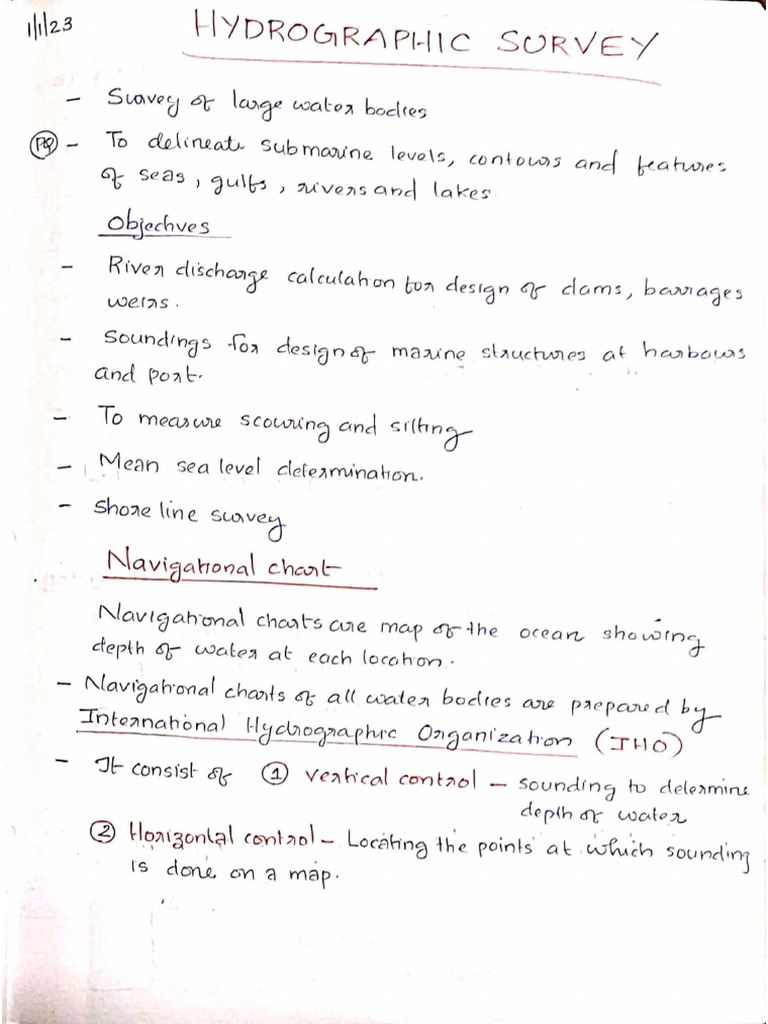 1/1/23
HYDROGRAPHIC SURVEY
- Survey of large water bodies
- To delineate submarine levels, contours and features
of seas, gulfs, rivers and lakes
Objectives
- River discharge calculation for design of dams, barrages
weirs.
- Soundings for design of marine structures at harbours
and port.
- To measure scouring and silting
- Mean sea level determination.
- Shore line survey
Navigational chart
Navigational charts are map of the ocean showing
depth of water at each location.
- Navigational charts of all water bodies are prepared by
International Hydrographic Organization (IHO)
- It consist of ① Vertical control - sounding to determine
depth of water
② Horizontal control - Locating the points at which sounding
is done on a map.